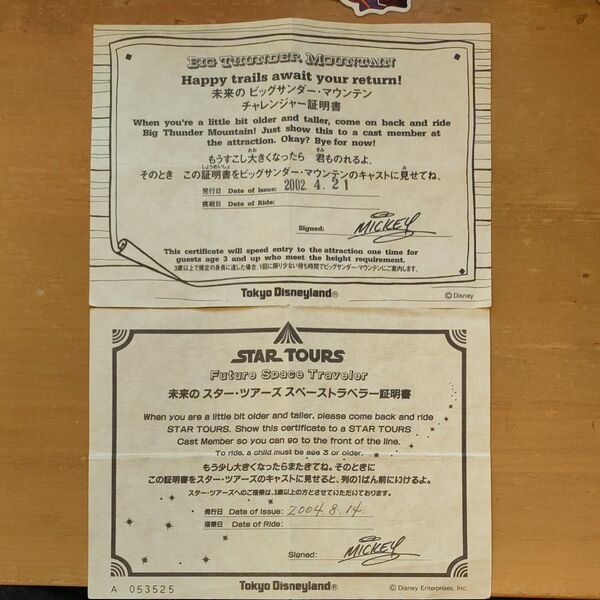 BIG THUNDER MOUNTAIN
Happy trails await your return!
未来の ビッグサンダー・マウンテン
チャレンジャー証明書
When you're a little bit older and taller, come on back and ride
Big Thunder Mountain! Just show this to a cast member at
the attraction. Okay? Bye for now!
もうすこし大きくなったら 君ものれるよ、
そのとき この証明書をビッグサンダー・マウンテンのキャストに見せてね。
発行日 Date of Issue: 2002. 4. 21
挑戦日 Date of Ride:
Signed: MICKEY
This certificate will speed entry to the attraction one time for
guests age 3 and up who meet the height requirement.
3歳以上で規定の身長に達した場合、1回に限り少ない待ち時間でビッグサンダー・マウンテンにご案内します。
Tokyo Disneyland®
© Disney
STAR TOURS
Future Space Traveler
未来の スター・ツアーズ スペーストラベラー証明書
When you are a little bit older and taller, please come back and ride
STAR TOURS. Show this certificate to a STAR TOURS
Cast Member so you can go to the front of the line.
To ride, a child must be age 3 or older.
もう少し大きくなったらまたきてね。そのときに
この証明書をスター・ツアーズのキャストに見せると、列の1ばん前にいけるよ。
スター・ツアーズへのご搭乗は、3歳以上の方とさせていただいております。
発行日 Date of Issue: 2004. 8. 14.
搭乗日 Date of Ride:
Signed: MICKEY
A 053525
Tokyo Disneyland®
© Disney Enterprises, Inc.